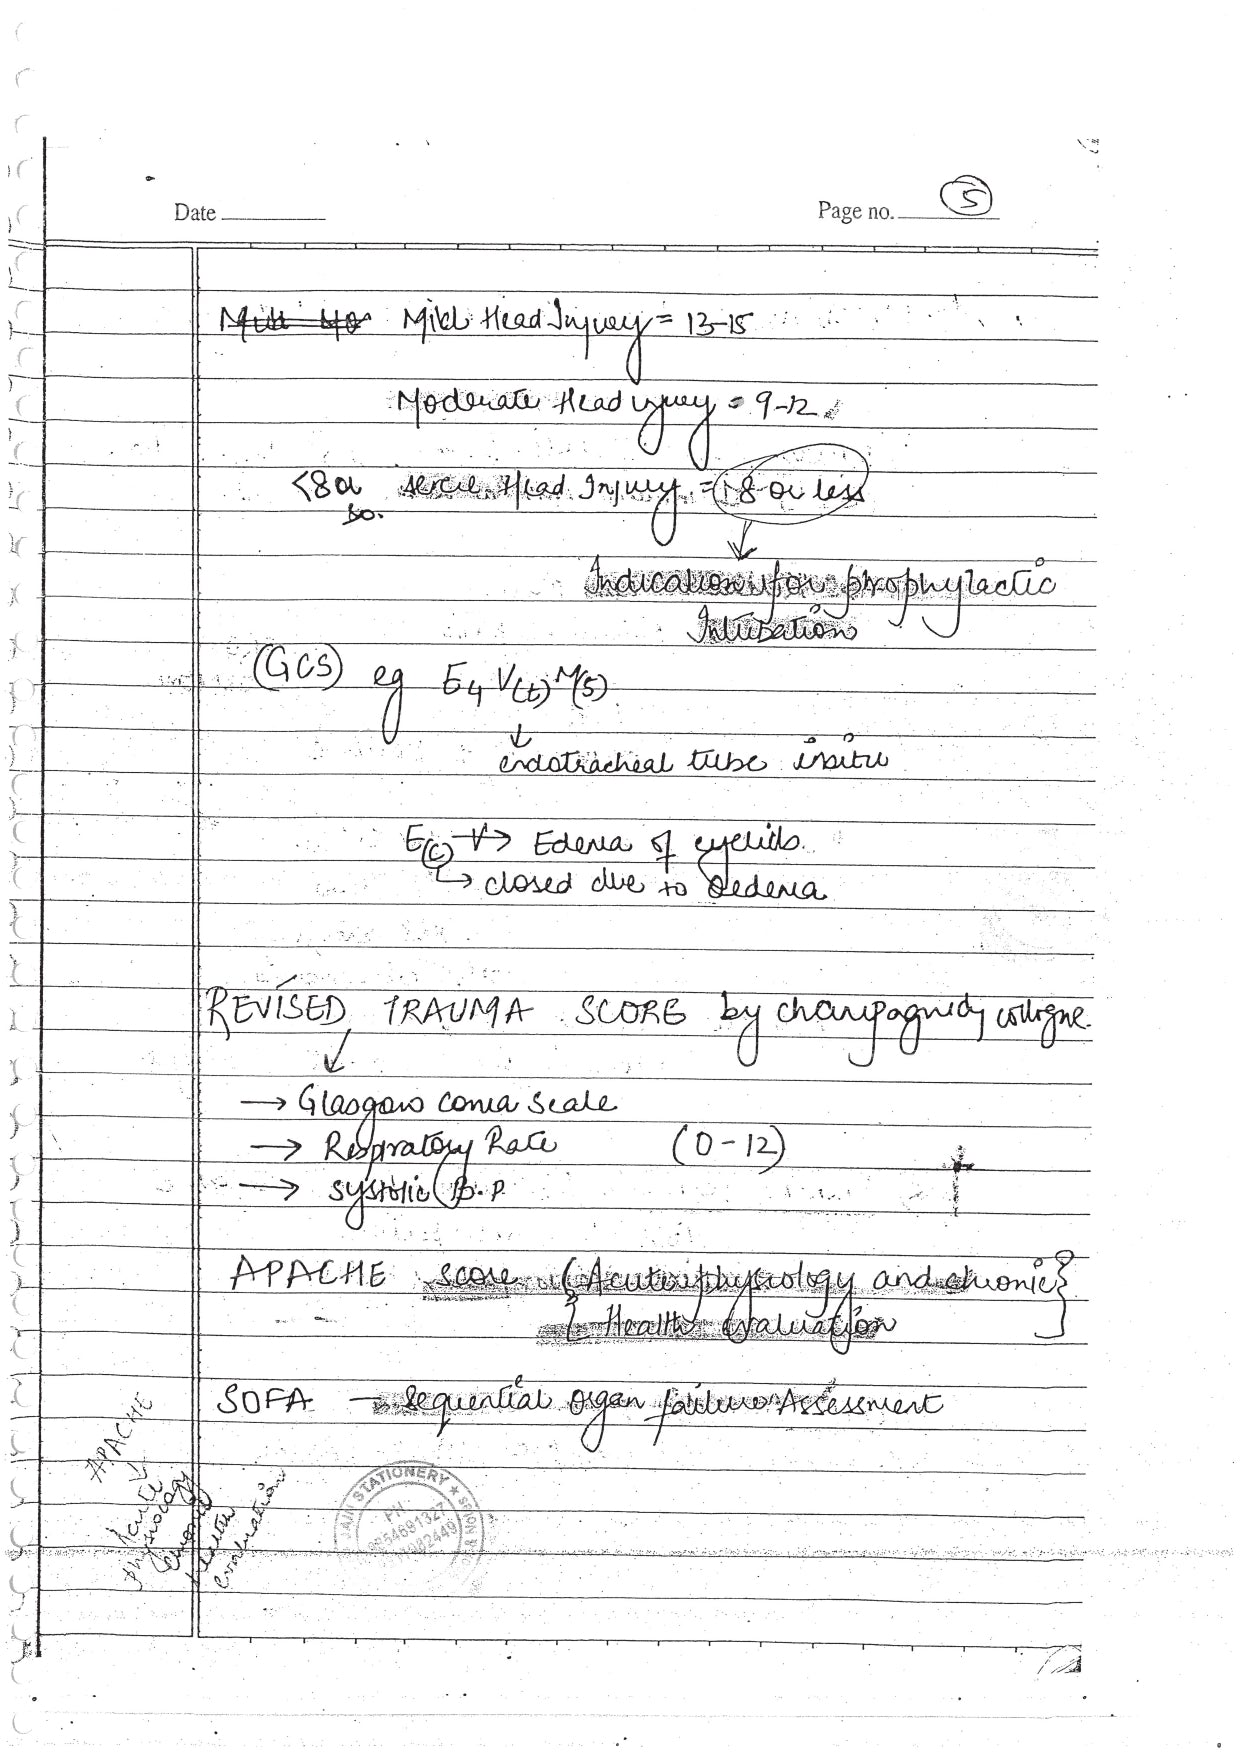 Date
Page no. 5
Mild Head Injury = 13-15
Moderate Head injury = 9-12
<8 or
so.
severe Head Injury = 8 or less
Indication for prophylactic
Intubation
(GCS) eg E4 V(t) M(5)
↓
endotracheal tube insitu
E(c) → Edema of eyelids.
→ closed due to Oedema
REVISED TRAUMA SCORE by
→ Glasgow coma scale
→ Respiratory Rate (0-12)
→ systolic B.P.
APACHE score {Acute physiology and chronic
Health Evaluation}
SOFA - sequential organ failure Assessment
APACHE
Acute
physiology
Health
Evaluation
JAIN STATIONERY ★
PH